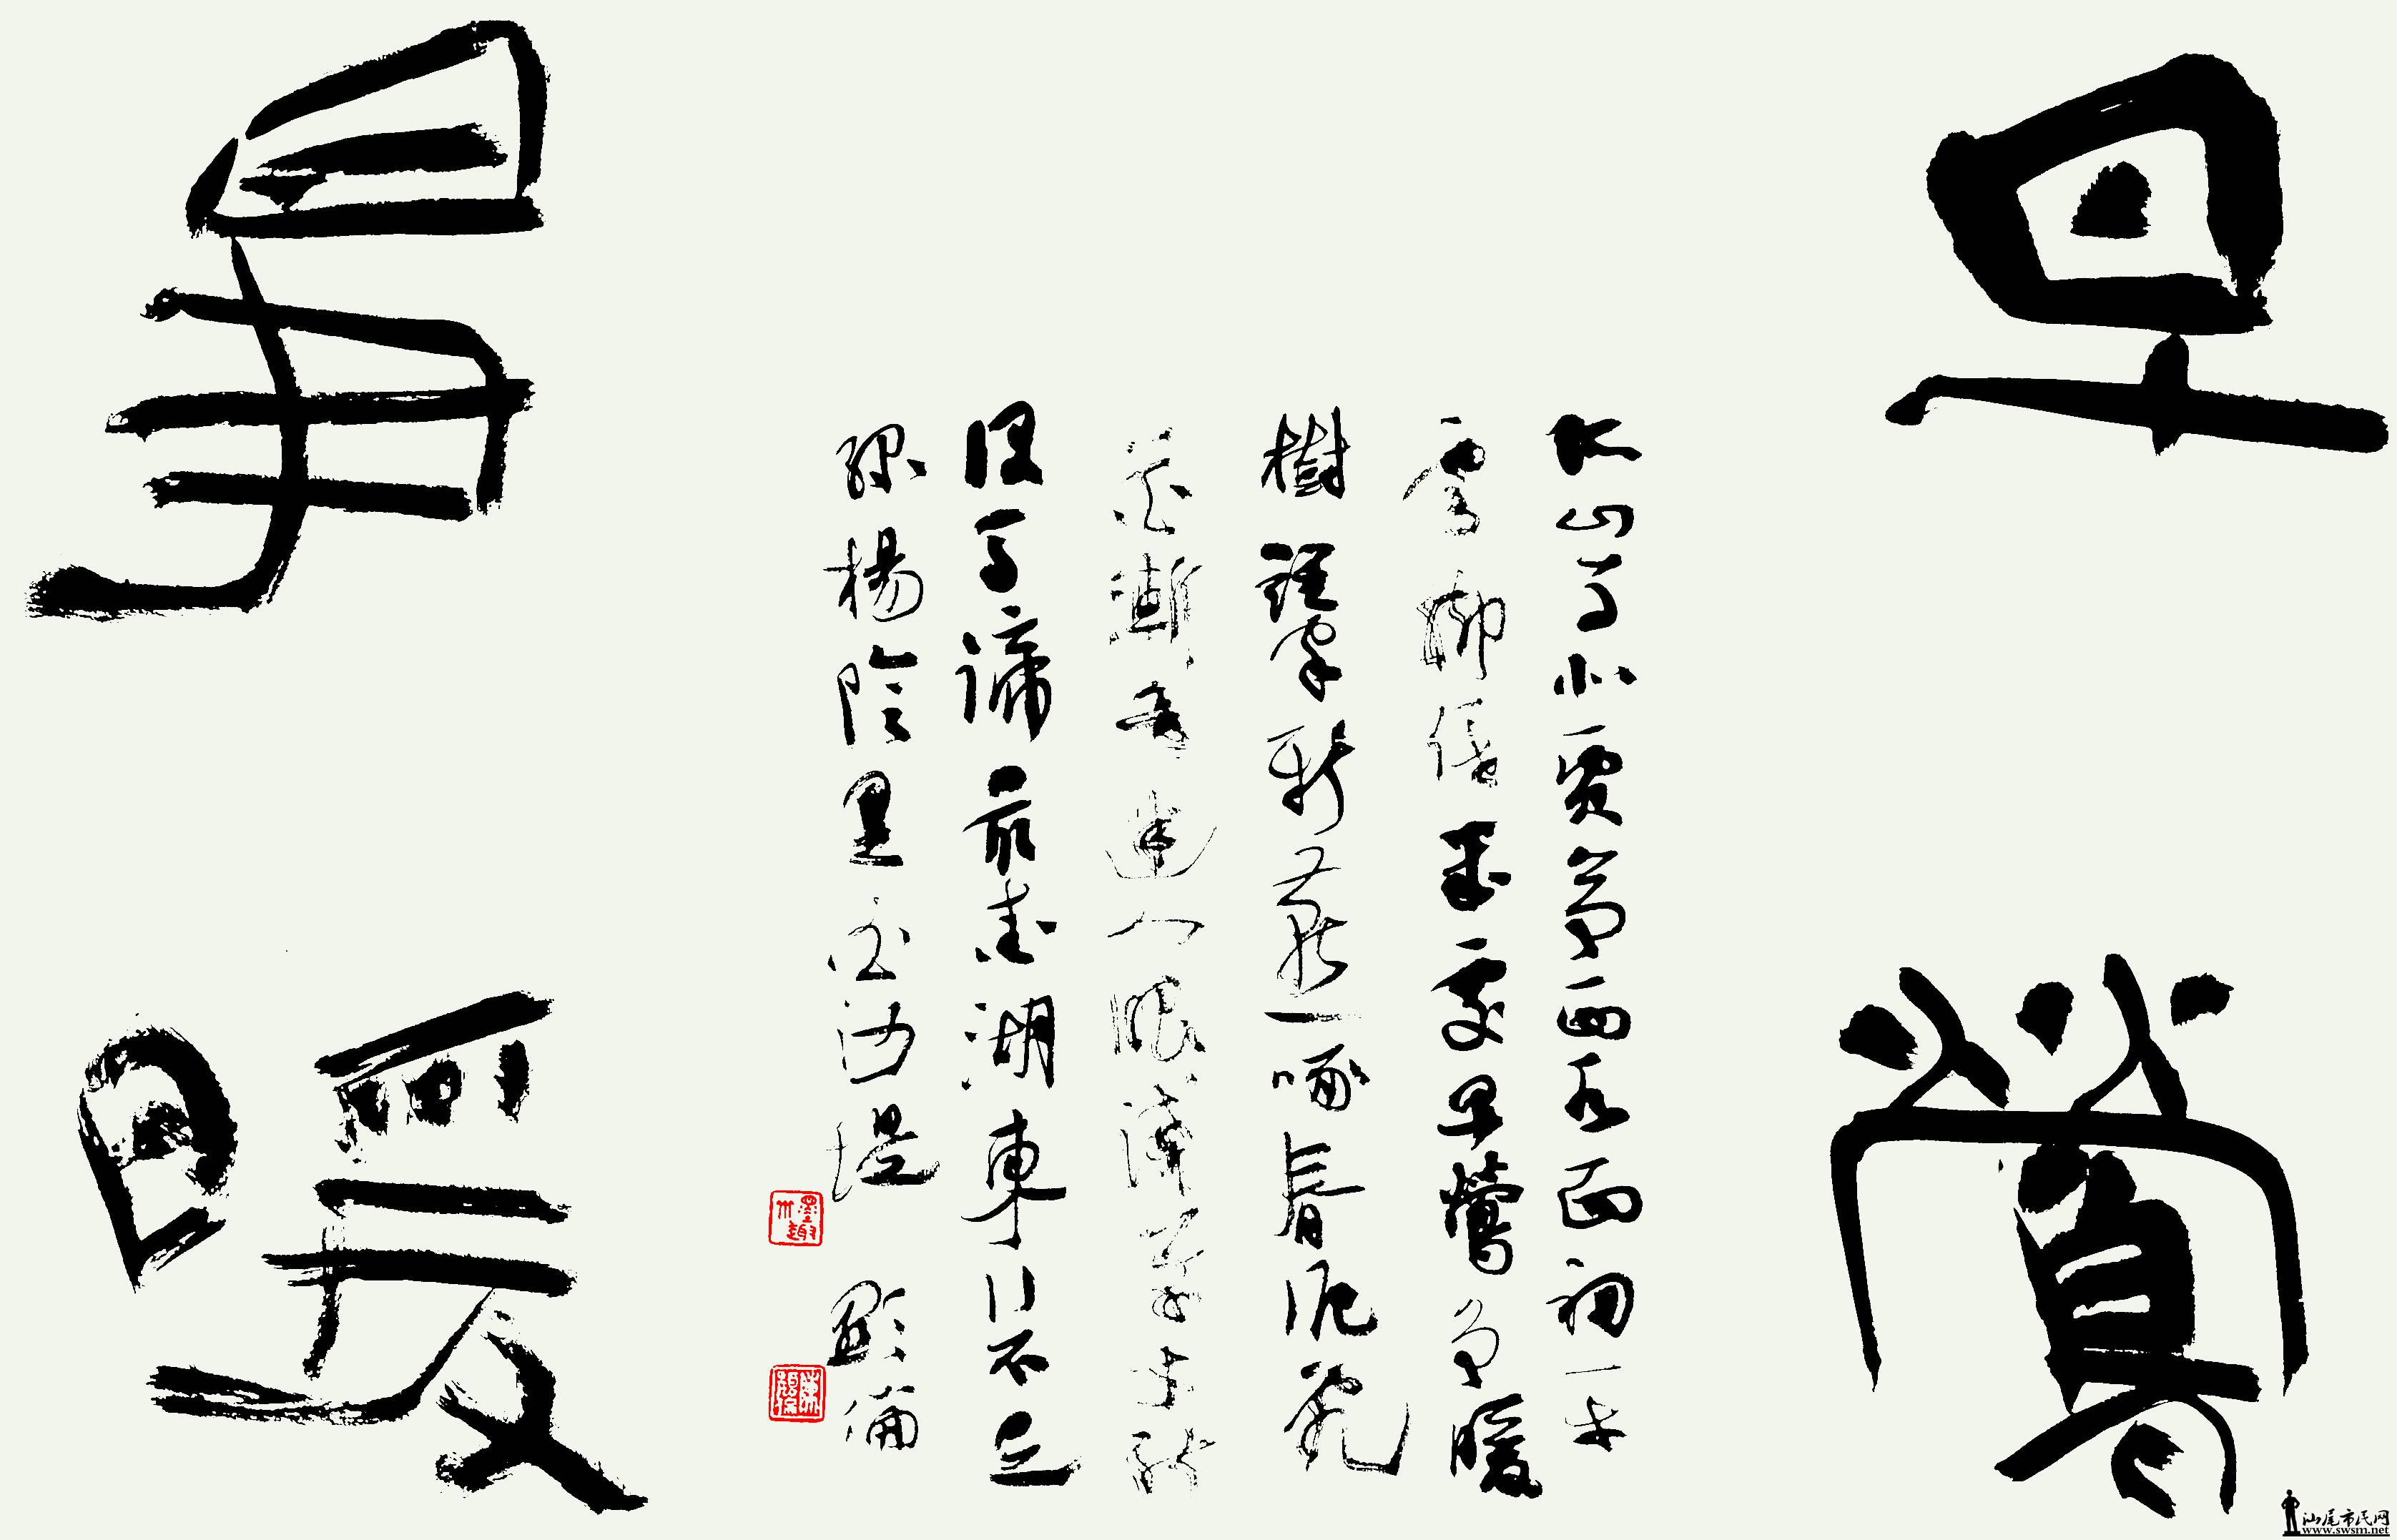 早鶯
孤山寺北賈亭西水面初平
雲腳低幾處早鶯爭暖
樹誰家新燕啄春泥亂
花漸欲迷人眼淺草才能
沒馬蹄最愛湖東行不足
綠楊陰里白沙堤 顯倫
爭暖
汕尾市民网
www.swsm.net